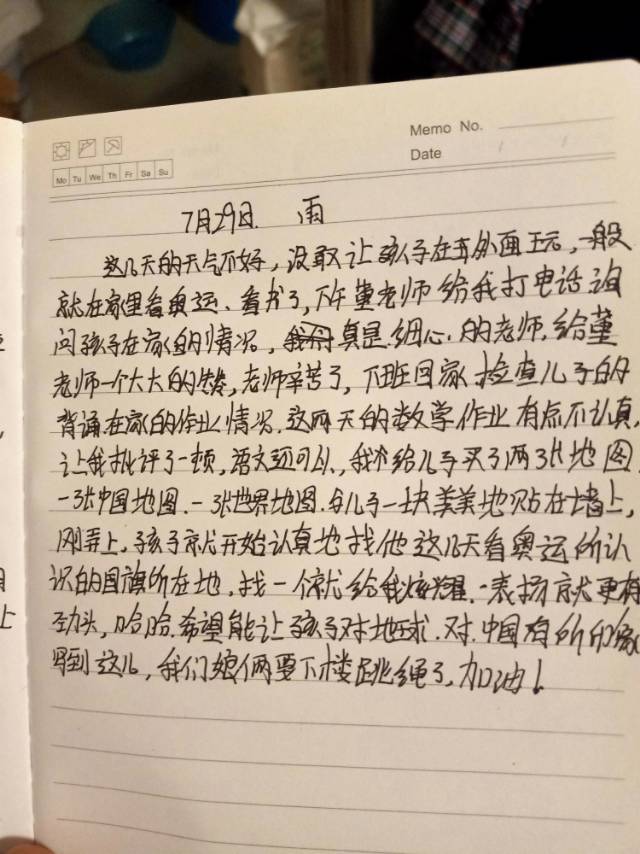 Memo No.
Date
Mo Tu We Th Fr Sa Su
7月29日. 雨
这几天的天气不好,没敢让孩子在外面玩,一般
就在家里看奥运、看书了,下午董老师给我打电话询
问孩子在家的情况,真是细心.的老师,给董
老师一个大大的赞,老师辛苦了,下班回家检查儿子的
背诵在家的作业情况,这两天的数学作业有点不认真,
让我批评了一顿,语文还可以,我给儿子买了两张地图
一张中国地图.一张世界地图.与儿子一块美美地贴在墙上,
刚弄上,孩子就开始认真地找他这几天看奥运所认
识的国旗所在地,找一个就给我炫耀.一表扬就更有
劲头,哈哈.希望能让孩子对地球.对.中国有所印象
写到这儿,我们娘俩要下楼跳绳了,加油!
上